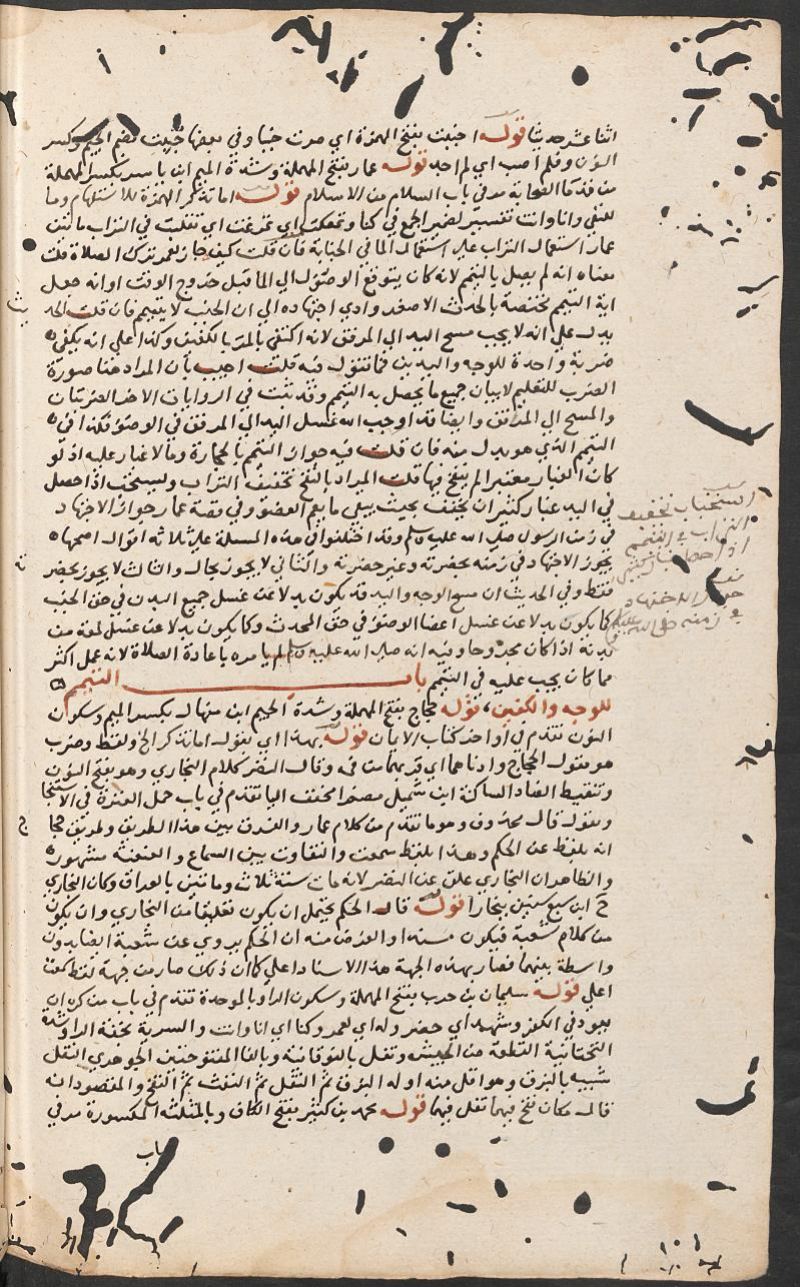 اثنا عشر حديثا قوله اجنبت بفتح الهمزة اي صرت جنبا وفي بعضها جنبت بضم الجيم وكسر
النون وفلم اصب اي لم اجد قوله عمار بفتح المهملة وشدة الميم ابن ياسر بكسر المهملة
من قدما الصحابة مر في باب السلام من الاسلام قوله اما تذكر الهمزة للاستفهام وما
للنفي وانا وانت تفسير لضمير الجمع في كنا وتمعكت اي تمرغت اي تقلبت في التراب ما ظن
عمار استعمال التراب علي استعمال الما في الجنابة فان قلت كيف جاز لعمر ترك الصلاة قلت
معناه انه لم يصل بالتيمم لانه كان يتوقع الوصول الي الما قبل خروج الوقت او انه جعل
اية التيمم مختصة بالحدث الاصغر وادي اجتهاده الي ان الجنب لا يتيمم فان قلت الحد
يث
يدل علي انه لا يجب مسح اليد الي المرفق لانه اكتفي بالمر بالكفين وكذا علي انه يكفي
ضربة واحدة للوجه واليدين فما تقول فيه قلت اجيب بان المراد هنا صورة
الضرب للتعليم لا بيان جميع ما يحصل به التيمم وقد ثبت في الروايات الاخر الضربتان
والمسح الي المرافق وايضا قد اوجب الله غسل اليد الي المرفق في الوضوء فكذا في
التيمم الذي هو بدل منه فان قلت فيه جواز التيمم بالحجارة وما لا غبار عليه اذ لو
كان الغبار معتبرا لم ينفخ فيها قلت المراد بالنفخ تخفيف التراب ويستحب اذا حصل
في اليد غبار كثير ان يخفف بحيث يبقي ما يعم العضو وفي قصة عمار جواز الاجتهاد
في زمن الرسول صلي الله عليه وسلم وقد اختلفوا في هذه المسلة علي ثلاثه اقوال اصحها
يجوز الاجتهاد في زمنه بحضرته وغير حضرته والثاني لا يجوز بحال والثالث لا يجوز بحضر
ته
فقط وفي الحديث ان مسح الوجه واليد قد يكون بدلا عن غسل جميع البدن في حق الجنب
كما يكون بدلا عن غسل اعضا الوضوء في حق المحدث وكما يكون بدلا عن غسل لمعة من
بدنه اذا كان مجروحا وفيه انه صلي الله عليه وسلم لم يامره باعادة الصلاة لانه عمل اكثر
مما كان يجب عليه في التيمم باب التيمم
للوجه والكفين، قوله حجاج بفتح المهملة وشدة الجيم ابن منهال بكسر الميم وسكون
النون تقدم في اواخر كتاب الايمان قوله بهذا اي بقوله اما تذكر الخ ولفظ وضرب
هو مقول الحجاج وادناهما اي قربهما من فيه وقال النضر كلام البخاري وهو بفتح النون
وتنقيط الضاد الساكنة ابن شميل مصغرا مخفف اليا تقدم في باب حمل العنزة في الاستنجا
ومقول قال محذوف وهو ما تقدم من كلام عمار والفرق بين هذا الطريق وطريق حجا
ج
انه بلفظ عن الحكم وهذا بلفظ سمعت والتفاوت بين السماع والعنعنة مشهورة
والظاهر ان البخاري علق عن النضر لانه مات سنة ثلاث ومائتين بالعراق وكان البخاري
ح ابن سبع سنين ببخارا قوله قال الحكم يحتمل ان يكون تعليقا من البخاري وان يكون
من كلام شعبة فيكون مسندا والغرض منه ان الحكم يروي عن شعبة ايضا بدون
واسطة بينهما فصار بهذه الجهة هذا الاسناد اعلي كما ان ذلك صار من جهة لفظ سمعت
اعلي قوله سليمان بن حرب بفتح المهملة وسكون الرا وبالموحدة تقدم في باب من كره ان
يعود في الكفر وشهد اي حضر وله اي لعمر وكنا اي انا وانت والسرية بخفة الرا وشدة
التحتانية القطعة من الجيش وتفل بالفوقانية وبالفا المفتوحتين الجوهري التفل
شبيه بالبزق وهو اقل منه اوله البزق ثم التفل ثم النفث ثم النفخ والمقصود انه
قال مكان نفخ فيهما تفل فيهما قوله محمد بن كثير بفتح الكاف وبالمثلثه المكسورة مر في
باب
استحباب تخفيف
التراب في التيمم
جواز الاجتهاد
في زمنه صلي الله عليه